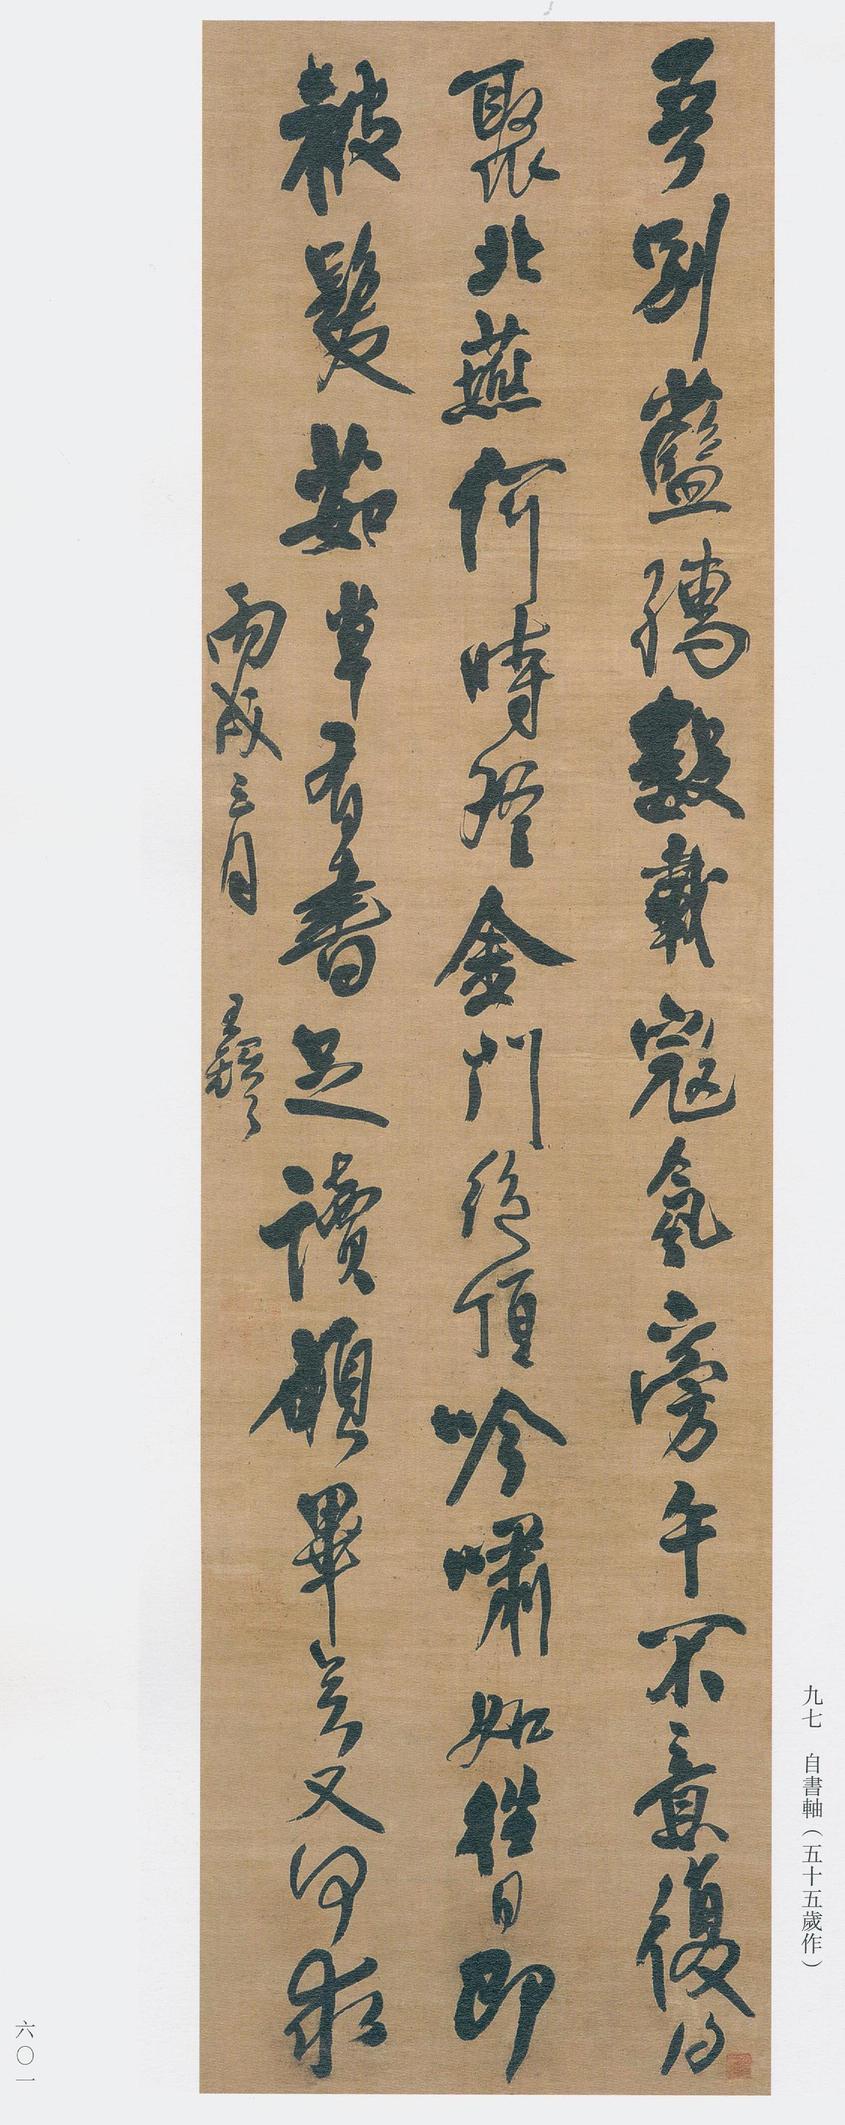 吾別藍孺數載寇氛旁午不意復得
聚北燕何時登金門絕頂吟嘯如往日即
被髮茹草有書足讀願畢矣又何求
丙戌三月 王鐸
九七 自書軸（五十五歲作）
六〇一